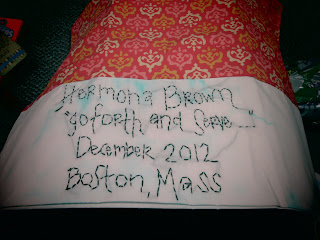 Hermona Brown
"go forth and serve...."
December 2012
Boston, Mass